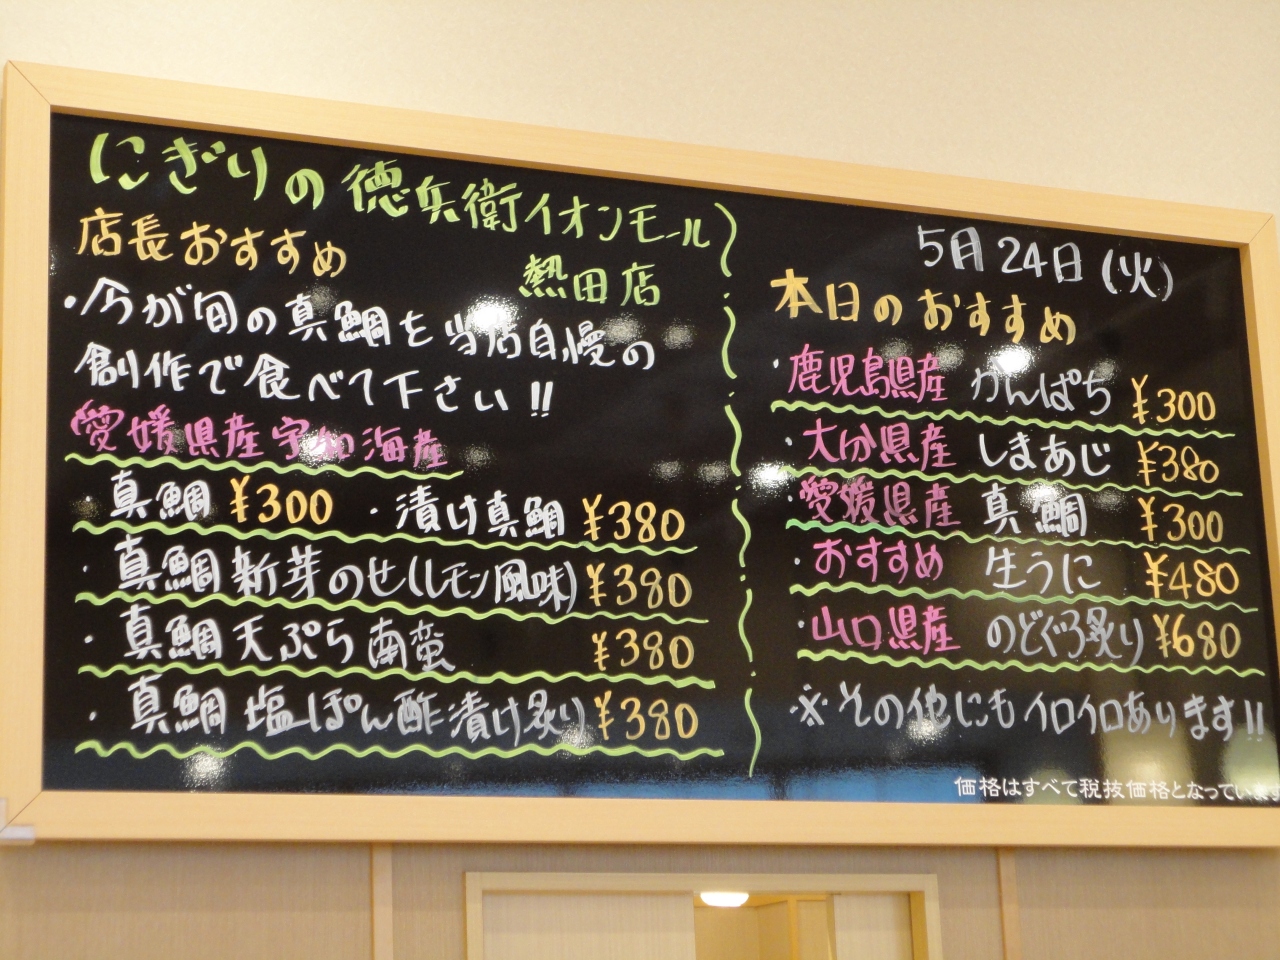 にぎりの徳兵衛イオンモール
熱田店
店長おすすめ
・今が旬の真鯛を当店自慢の
創作で食べて下さい!!
愛媛県産宇和海産
・真鯛 ¥300 ・漬け真鯛 ¥380
・真鯛新芽のせ(レモン風味) ¥380
・真鯛天ぷら南蛮 ¥380
・真鯛塩ぽん酢漬け炙り ¥380
5月24日(火)
本日のおすすめ
・鹿児島県産 かんぱち ¥300
・大分県産 しまあじ ¥380
・愛媛県産 真鯛 ¥300
・おすすめ 生うに ¥480
・山口県産 のどぐろ炙り ¥680
※その他にもイロイロあります!!
価格はすべて税抜価格となっています